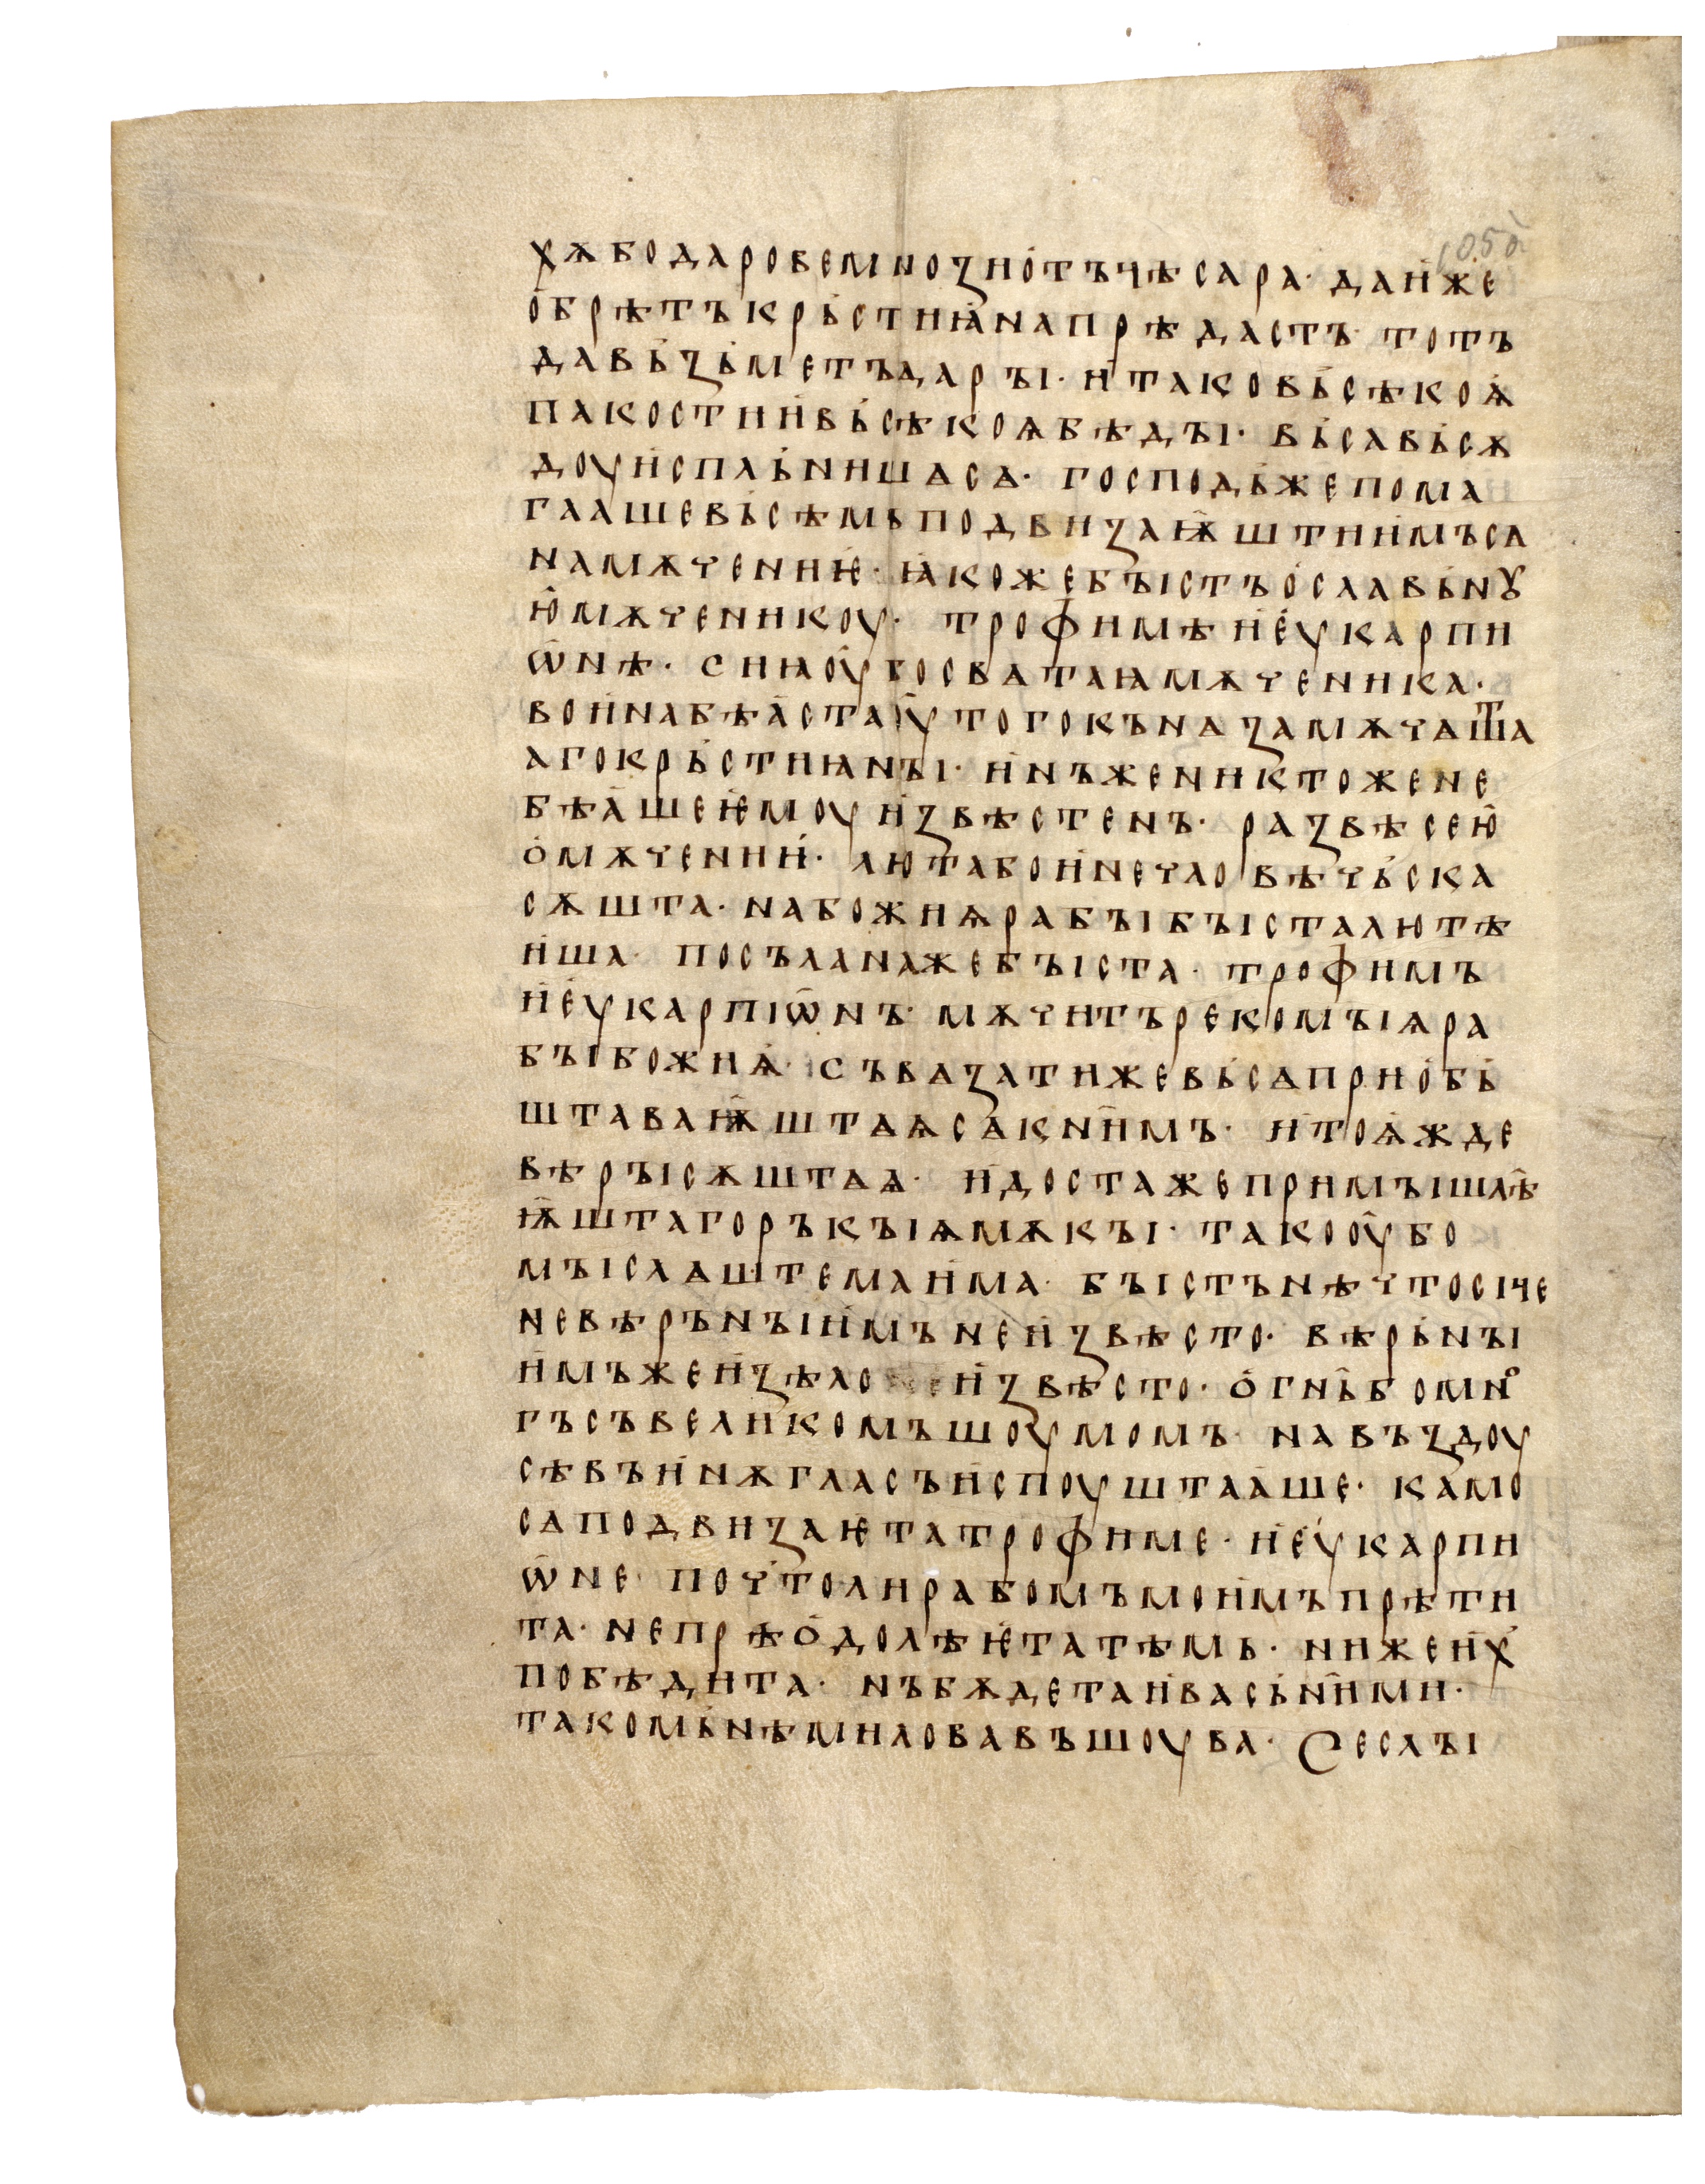 105а
хѫбодаровемноꙁиотъцѣсара· даиже
обрѣтъкрьстиꙗнапрѣдастъ· тотъ
давьꙁьметъдарꙑ· итаковьсѣкоѧ
пакостиивьсѣкоѧбѣдꙑ· вьсавьсѫ
доуисплънишасѧ· господьжепома
гаашевьсѣмъподвиꙁаѭштиимъсѧ
намѫчениѥ· ꙗкожебꙑстъославьнꙋ
юмѫченикоу· трофимѣиеукарпи
ѡнѣ· сиꙗоугосвѧтаꙗмѫченика·
воинабѣастаоутогокънѧꙁамѫчѧшта
агокрьстиꙗнꙑ· инъженикътожене
бѣашеѥмоуиꙁвѣстенъ· раꙁвѣсею
омѫчении· лютабоинечловѣчьска
сѫшта· набожиѧрабꙑбꙑсталютѣ
иша· посъланажебꙑста· трофимъ
иеукарпіѡнъ· мѫчитърекомꙑѧра
бꙑбожиѧ· съвѧꙁатижевьсѧприобь
штаваѭштѧѧсѧкнимъ· итоѧжде
вѣрꙑсѫштѧѧ· идостажепримꙑшлѣ
ѭштагоръкꙑѧмѫкꙑ· такооубо
мꙑслѧштемаима· бꙑстънѣчтосіце
невѣрънꙑимънеиꙁвѣсто· вѣрьнꙑ
имъжеиꙁѣлоиꙁвѣсто· огньбомно
гъсъвеликомъшоумомъ· навъꙁдоу
сѣвъинѫгласъиспоуштааше· камо
сѧподвиꙁаѥтатрофиме· иеукарпи
ѡне· почтолирабомъмоимъпрѣти
та· непрѣодолѣѥтатѣмь· нижеихъ
побѣдита· нъбѫдетаивасьними·
такомьнѣмиловавъшоува· Сеслꙑ